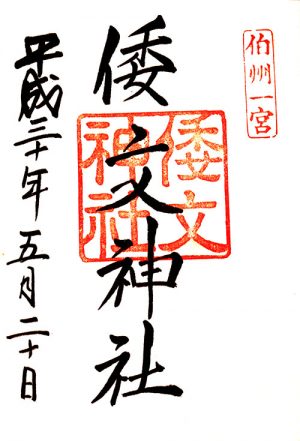 伯州一宮
倭文神社
倭文神社
平成三十年五月二十日